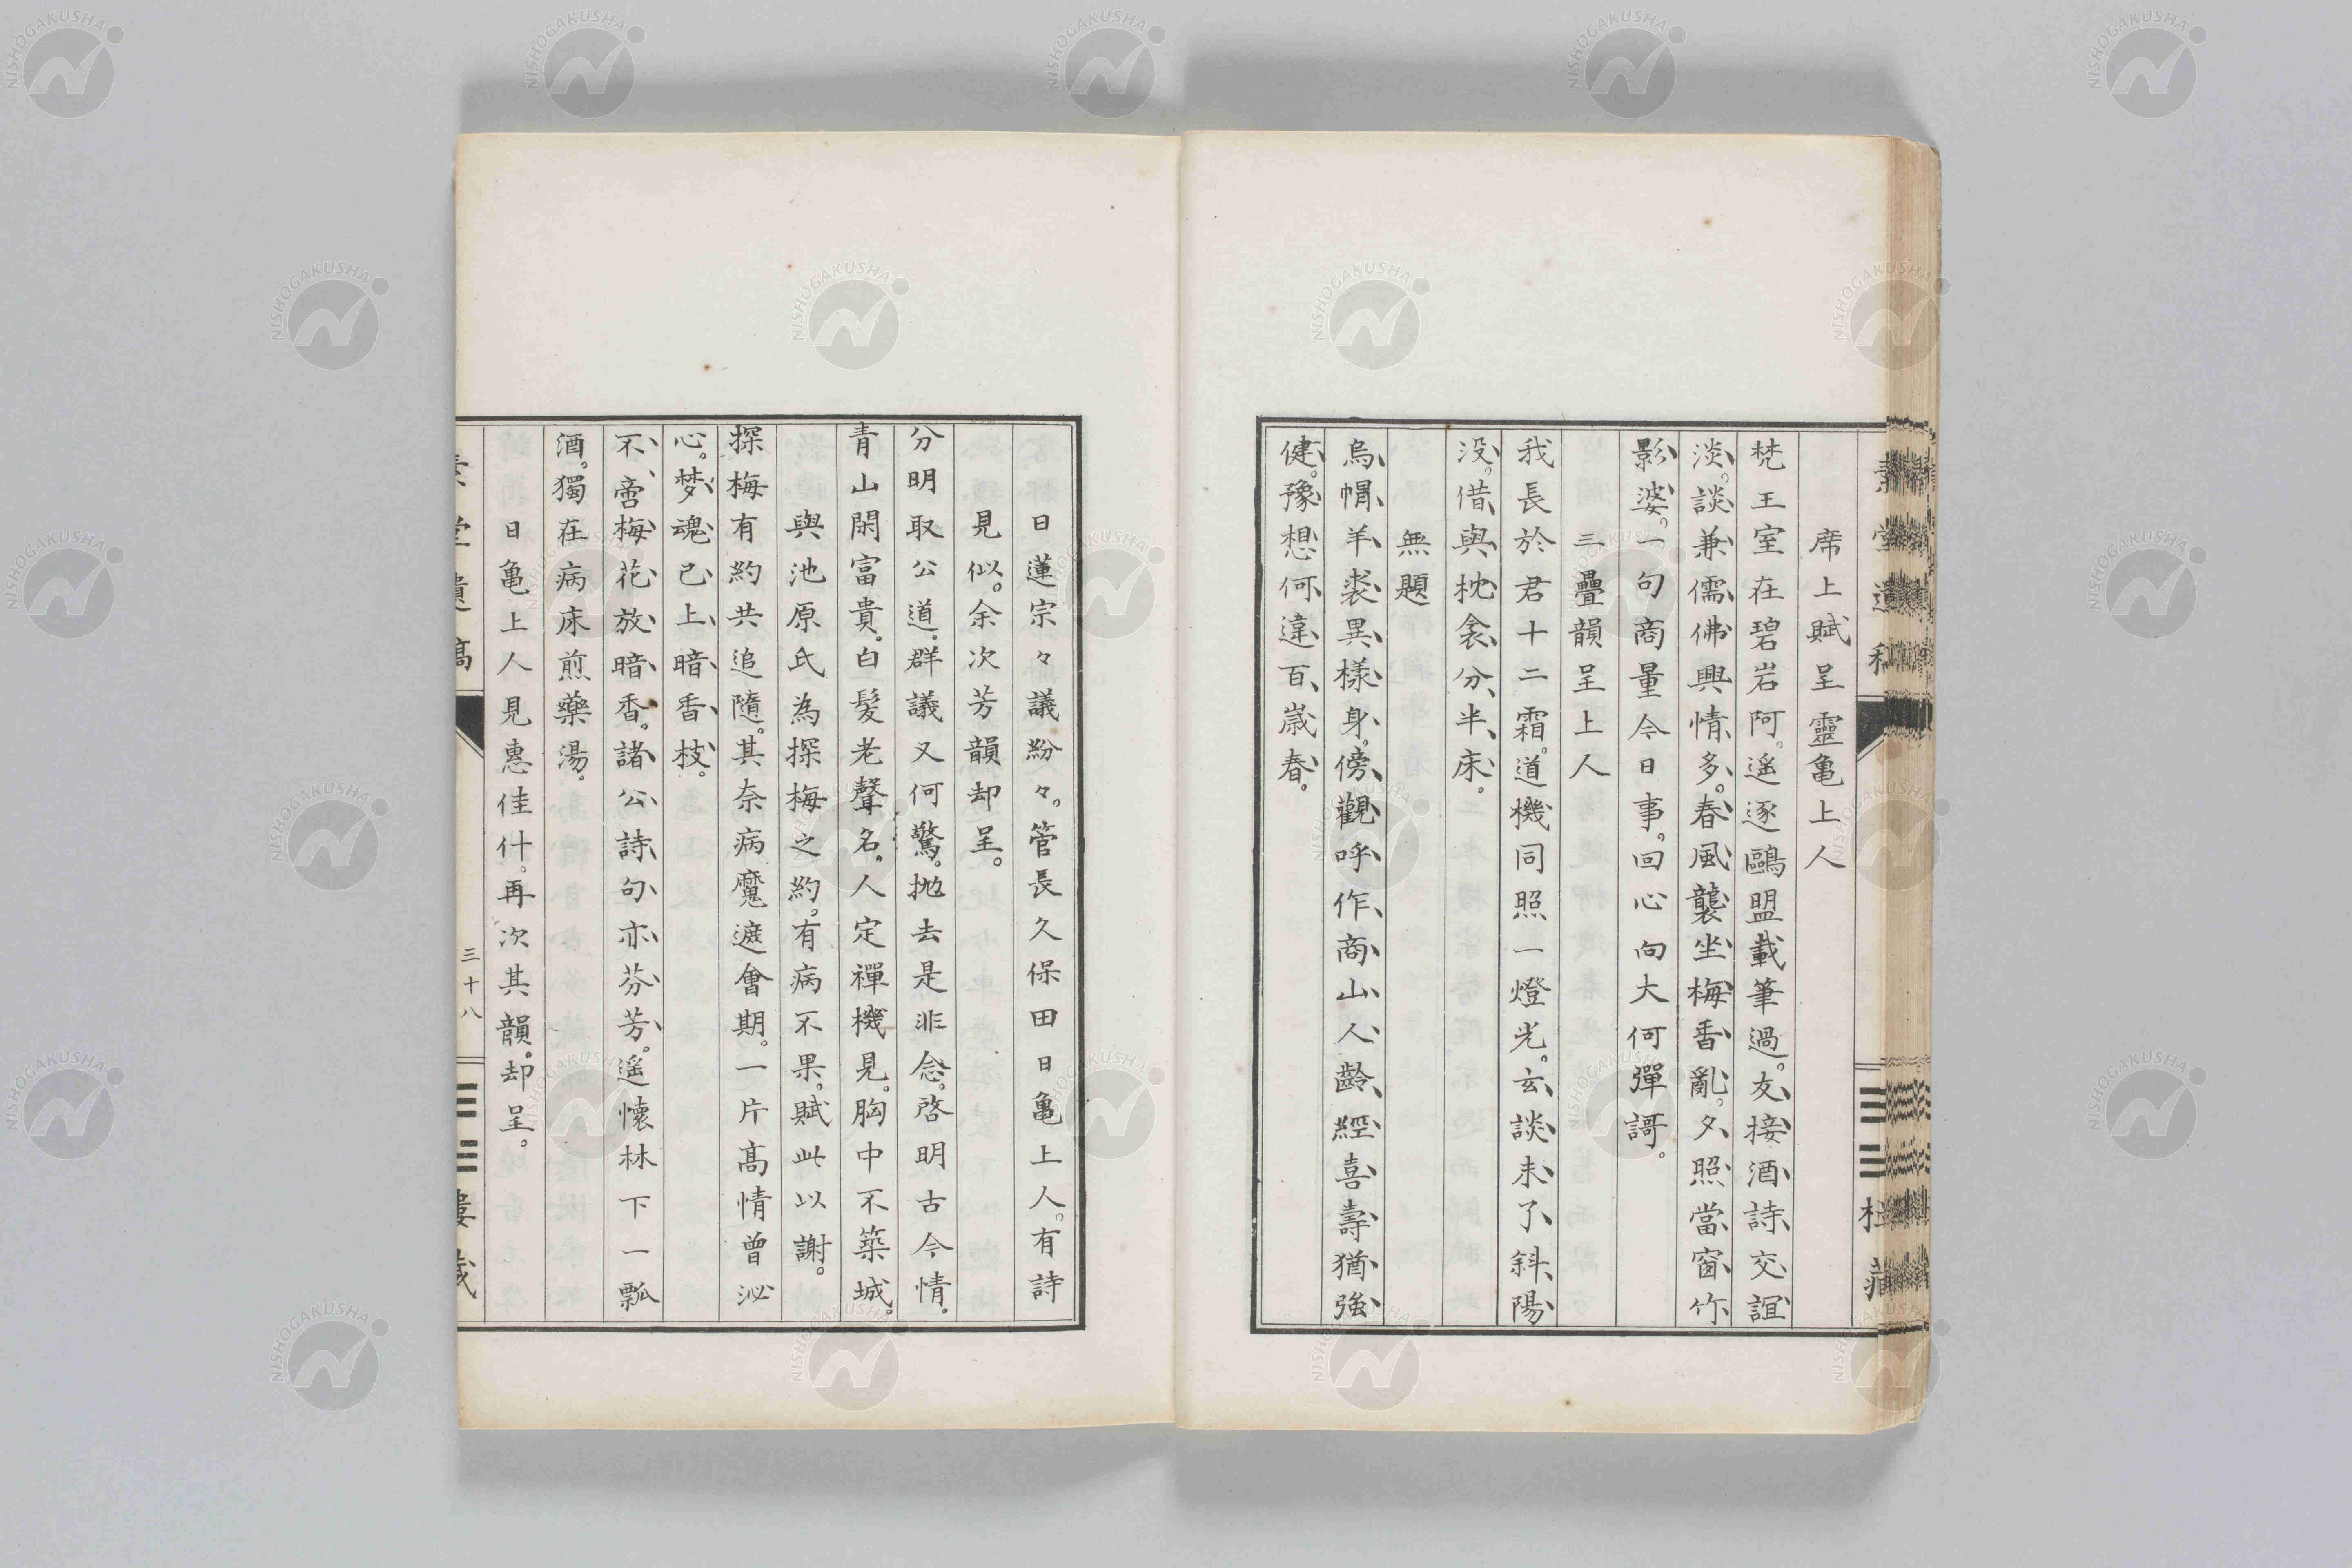 席上賦呈靈亀上人
梵王室在碧岩阿。遥逐鷗盟載筆過。友接酒詩交誼
淡。談兼儒佛興情多。春風襲坐梅香亂。夕照當窗竹
影婆。一句商量今日事。回心向大何彈謌。
三疊韻呈上人
我長於君十二霜。道機同照一燈光。玄談未了斜陽
没。借與枕衾分半床。
無題
烏帽羊裘異樣身。傍觀呼作商山人。齡經喜壽猶強
健。豫想何違百歳春。
日蓮宗々議紛々。管長久保田日亀上人。有詩
見似。余次芳韻却呈。
分明取公道。群議又何驚。拋去是非念。啓明古今情。
青山閑富貴。白髮老聲名。人定禪機見。胸中不築城。
與池原氏為探梅之約。有病不果。賦此以謝。
探梅有約共追隨。其奈病魔遮會期。一片高情曾沁
心。梦魂已上暗香枝。
不啻梅花放暗香。諸公詩句亦芬芳。遥懷林下一瓢
酒。獨在病床煎藥湯。
日亀上人見惠佳什。再次其韻。却呈。
三十八
NISHOGAKUSHA